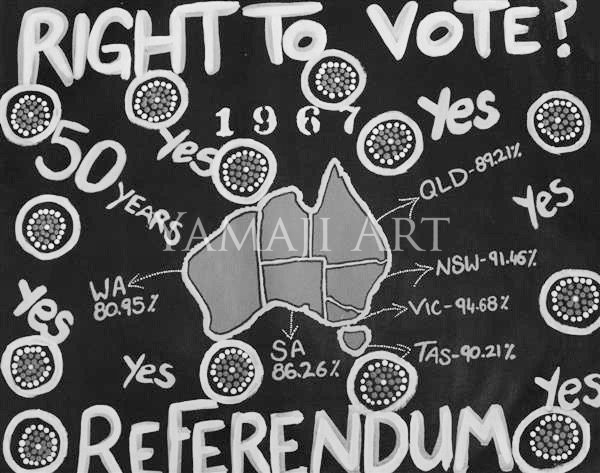 RIGHT TO VOTE?
1967
Yes
Yes
50 YEARS
QLD-89.21%
Yes
YAMAJI ART
NSW-91.46%
WA
80.95%
VIC-94.68%
Yes
SA
86.26%
TAS-90.21%
Yes
Yes
REFERENDUM